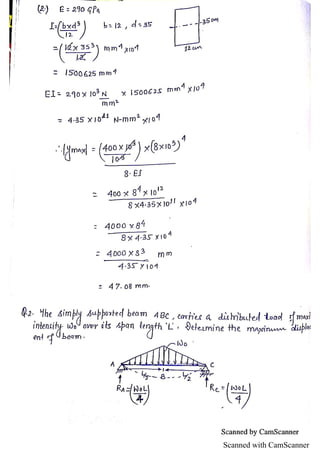 (2.) E = 290 GPa
I = (bxd³/12) b = 12, d = 35
35cm
= (12 x 35³/12) mm⁴ x10⁴
12cm
= 1500625 mm⁴
EI = 290 x 10³ N/mm² x 1500625 mm⁴ x10⁴
= 4.35 x10¹¹ N-mm² x10⁴
∴ |ymax| = (400 x 10³/10³) x (8x10³)⁴
8.EI
= 400 x 8⁴ x 10¹²
8 x 4.35 x 10¹¹ x 10⁴
= 4000 x 8⁴
8 x 4.35 x 10⁴
= 4000 x 8³ mm
4.35 x 10⁴
= 47.08 mm.
Q.2. The simply supported beam ABC, carries a distributed load of maxi
intensity Wo over its span length 'L'. Determine the maximum displac
ent of beam.
Wo
A C
L/2 B L/2
RA = (WoL/4) RC = (WoL/4)
Scanned by CamScanner
Scanned with CamScanner